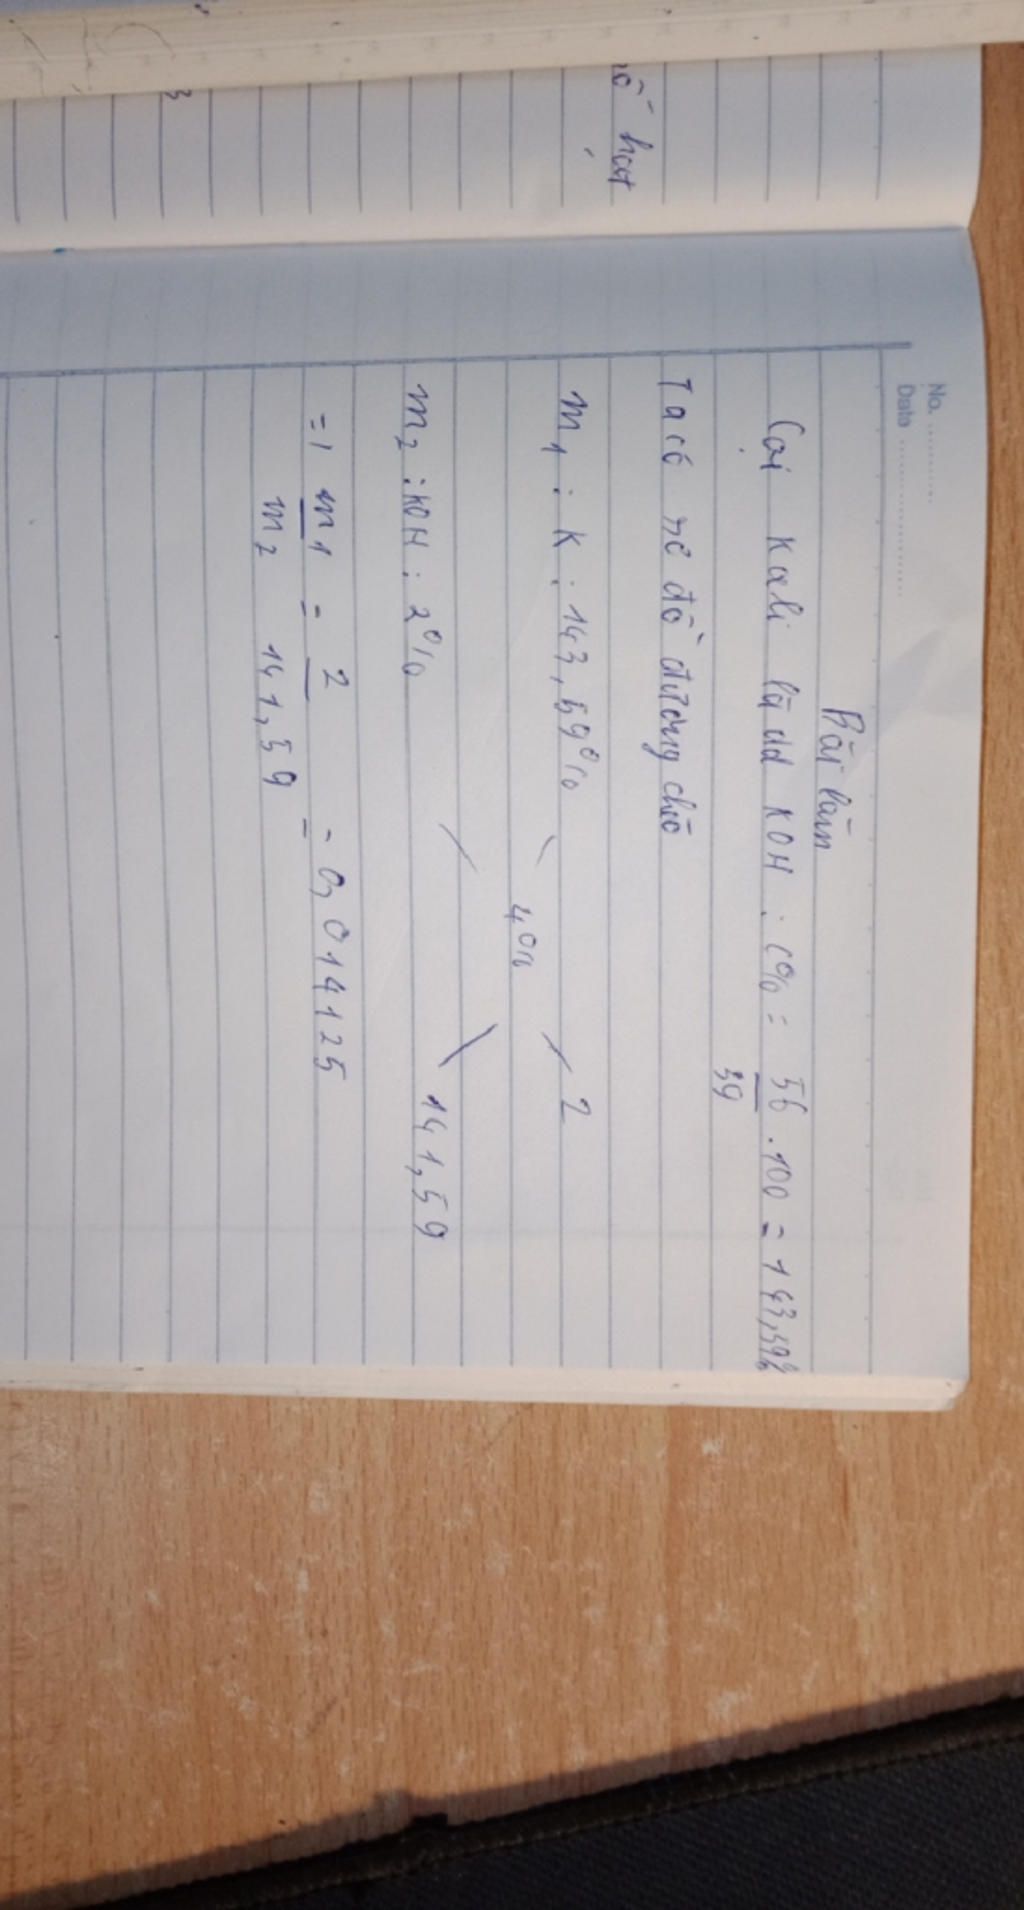 ồ hoạt
3
No. ............
Date ....................
Bài làm
Coi Kali là dd KOH : C% = 56/39 . 100 = 143,59%
Ta có sơ đồ đường chéo
m1 : K : 143,59% 2
4%
m2 : KOH : 2% 141,59
=> m1/m2 = 2/141,59 = 0,014125